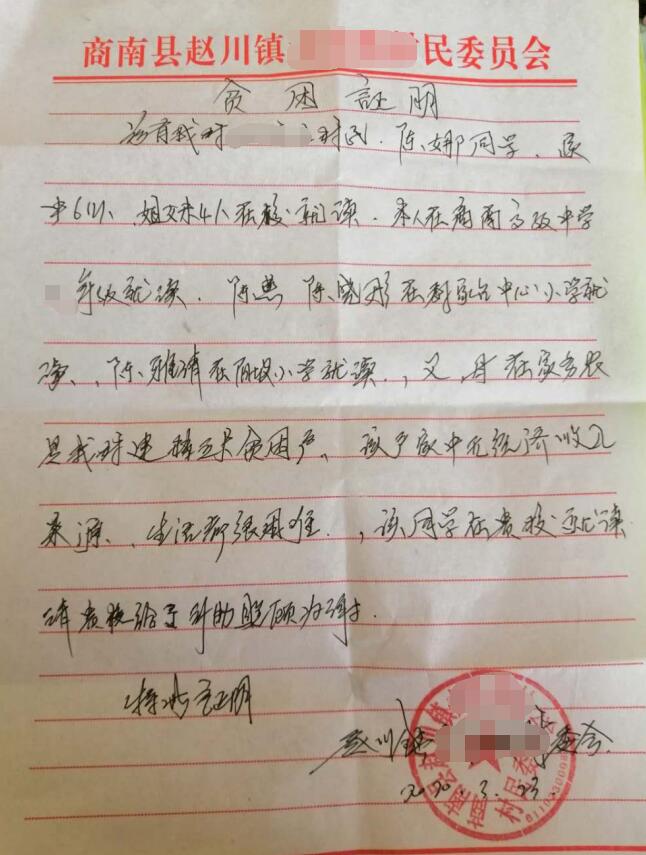 商南县赵川镇 民委员会
贫困証明
兹有我村 村民陈娜同学、家
中6口人、姐妹4人在校就读. 本人在商南高级中学
年级就读. 陈 陈晓彤在 中心小学就
读、陈雅 在 小学就读、父母在家务农
是我村建档立卡贫困户、该户家中无经济收入
来源、生活都很困难、该同学在贵校就读
请贵校给予补助照顾为谢.
特此证明
赵川镇 委会
2020.3.23.